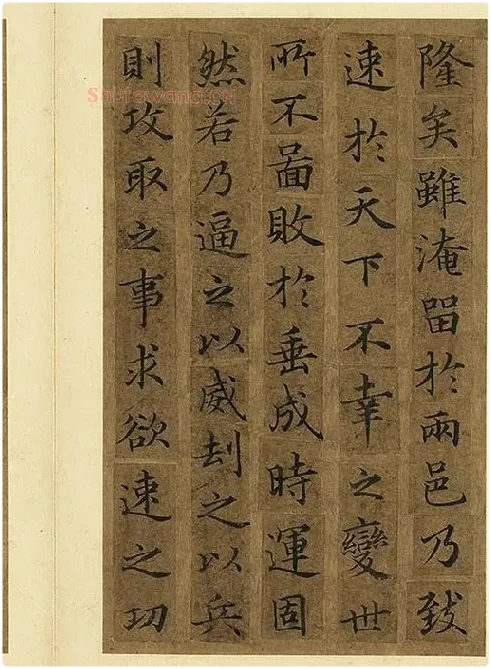 隆矣雖淹留於兩邑乃致
速於天下不幸之變世
所不啚敗於垂成時運固
然若乃逼之以威刧之以兵
則攻取之事求欲速之功